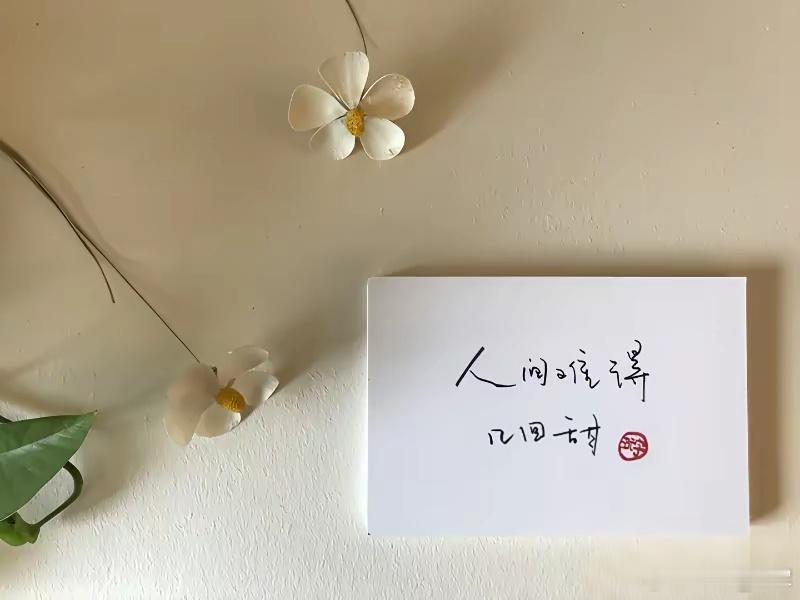 人间难得
几回甜